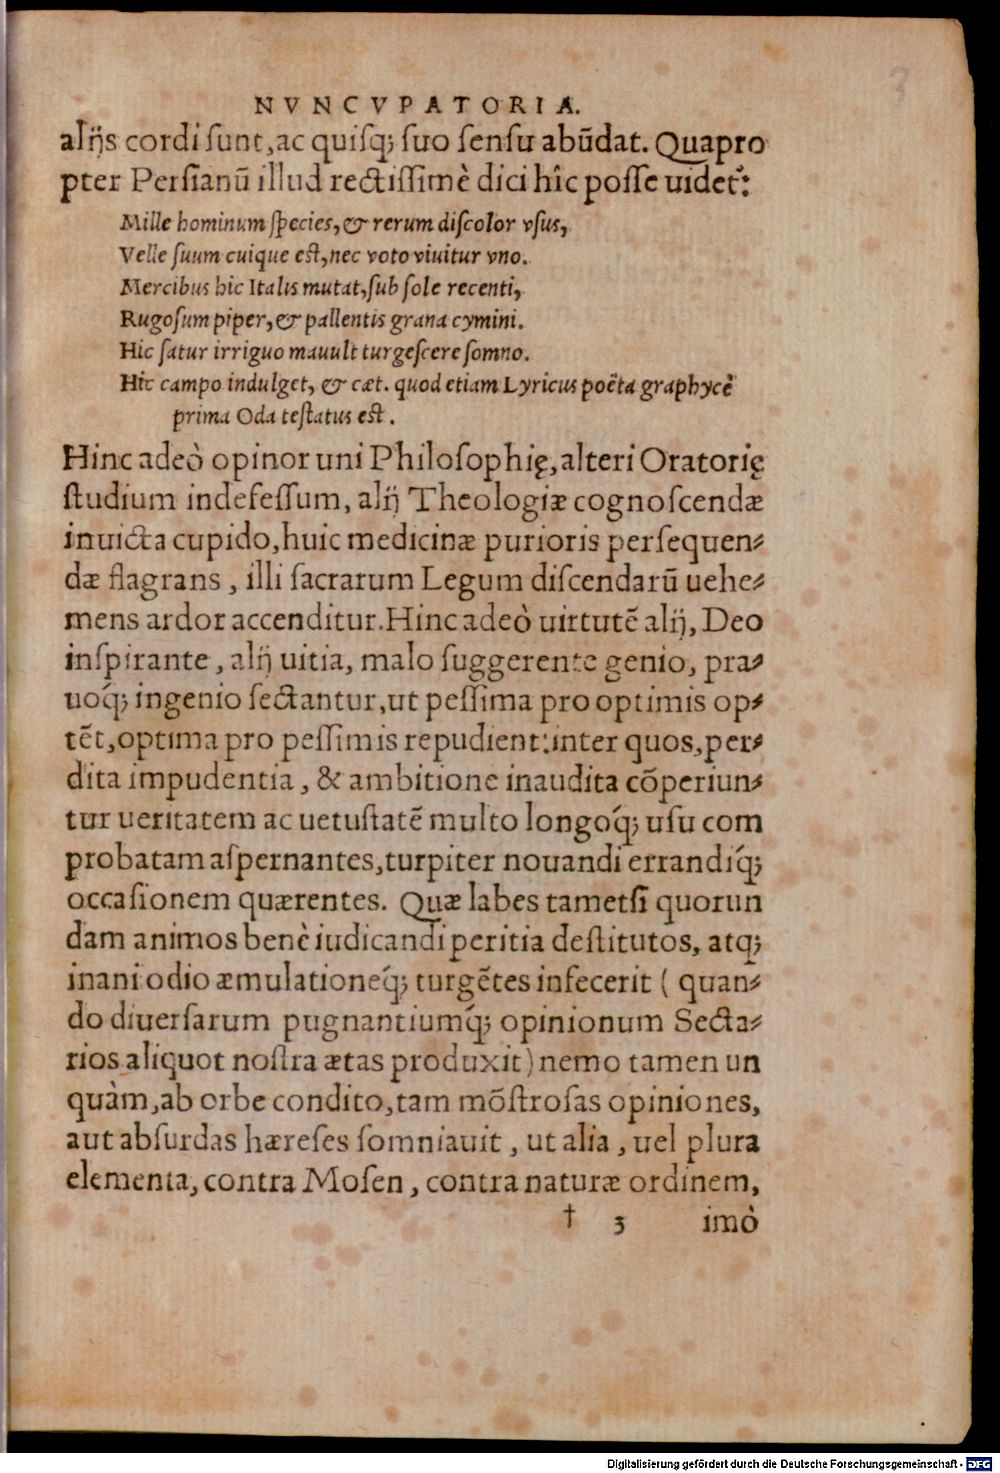 NVNCVPATORIA.
alijs cordi ſunt, ac quiſq; ſuo ſenſu abūdat. Quapro
pter Perſianū illud rectiſſimè dici hîc poſſe uidet̃:
Mille hominum ſpecies, & rerum diſcolor vſus,
Velle ſuum cuique eſt, nec voto viuitur vno.
Mercibus hic Italis mutat, ſub ſole recenti,
Rugoſum piper, & pallentis grana cymini.
Hic ſatur irriguo mauult turgeſcere ſomno.
Hic campo indulget, & cæt. quod etiam Lyricus poëta graphycè
prima Oda teſtatus eſt.
Hinc adeò opinor uni Philoſophię, alteri Oratorię
ſtudium indefeſſum, alij Theologiæ cognoſcendæ
inuicta cupido, huic medicinæ purioris perſequen-
dæ flagrans, illi ſacrarum Legum diſcendarū uehe-
mens ardor accenditur. Hinc adeò uirtutē alij, Deo
inſpirante, alij uitia, malo ſuggerente genio, pra-
uoq́; ingenio ſectantur, ut peſſima pro optimis op-
tēt, optima pro peſſimis repudient: inter quos, per-
dita impudentia, & ambitione inaudita cōperiun-
tur ueritatem ac uetuſtatē multo longoq́; uſu com
probatam aſpernantes, turpiter nouandi errandiq́;
occaſionem quærentes. Quæ labes tametſi quorun
dam animos benè iudicandi peritia deſtitutos, atq;
inani odio æmulationeq́; turgētes infecerit ( quan-
do diuerſarum pugnantiumq́; opinionum Secta-
rios aliquot noſtra ætas produxit) nemo tamen un
quàm, ab orbe condito, tam mōſtroſas opiniones,
aut abſurdas hæreſes ſomniauit, ut alia, uel plura
elementa, contra Moſen, contra naturæ ordinem,
† 3 imò
3
Digitalisierung gefördert durch die Deutsche Forschungsgemeinschaft - DFG